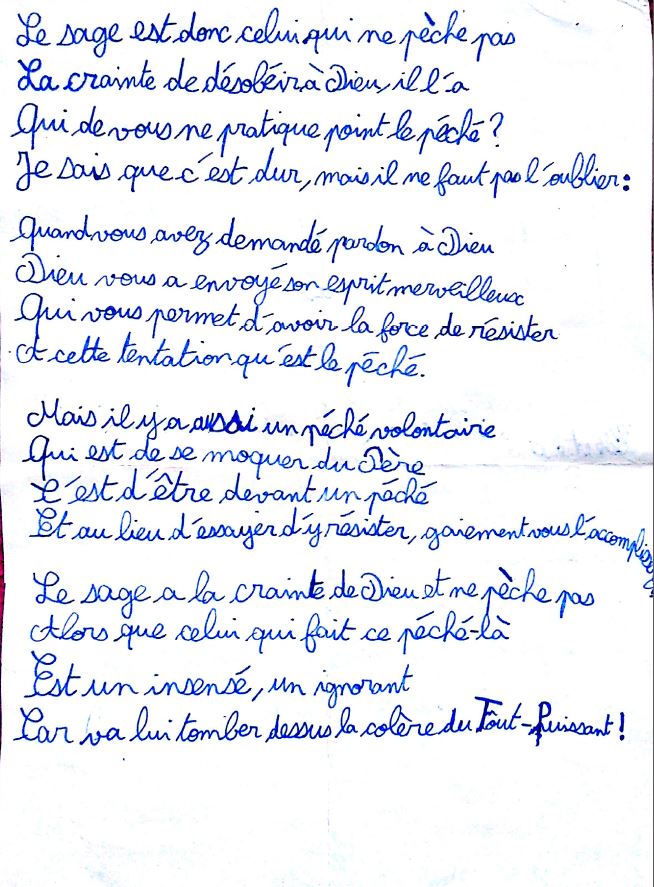 Le sage est donc celui qui ne pèche pas
La crainte de désobéir à Dieu, il l'a
Qui de vous ne pratique point le péché ?
Je sais que c'est dur, mais il ne faut pas l'oublier :
Quand vous avez demandé pardon à Dieu
Dieu vous a envoyé son esprit merveilleux
Qui vous permet d'avoir la force de résister
A cette tentation qu'est le péché.
Mais il y a aussi un péché volontaire
Qui est de se moquer du Père
C'est d'être devant un péché
Et au lieu d'essayer d'y résister, gaiement vous l'accomplissez
Le sage a la crainte de Dieu et ne pèche pas
Alors que celui qui fait ce péché-là
Est un insensé, un ignorant
Car va lui tomber dessus la colère du Tôut-Puissant !